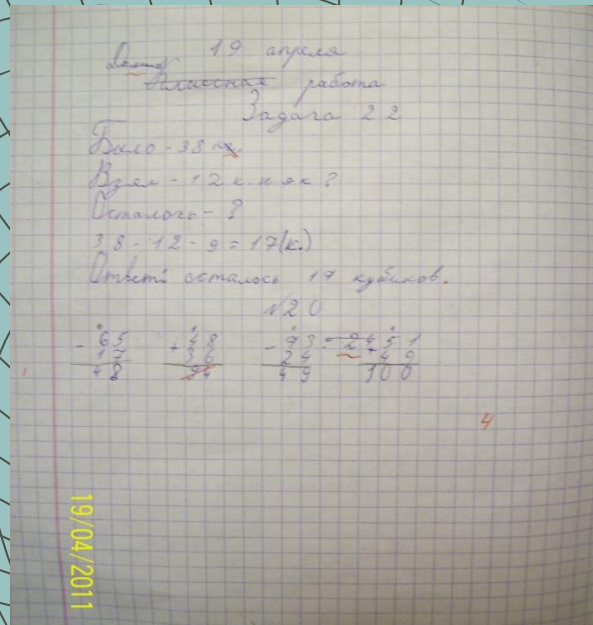 19 апреля
Домаш.
Классная работа
Задача 22
Было - 38 к.
Взял - 12 к. и 9 к ?
Осталось - ?
38 - 12 - 9 = 17 (к.)
Ответ: осталось 17 кубиков.
№20
- 65 + 48 - 93 - 24 + 51
17 36 24 49
48 84 49 100
4
19/04/2011